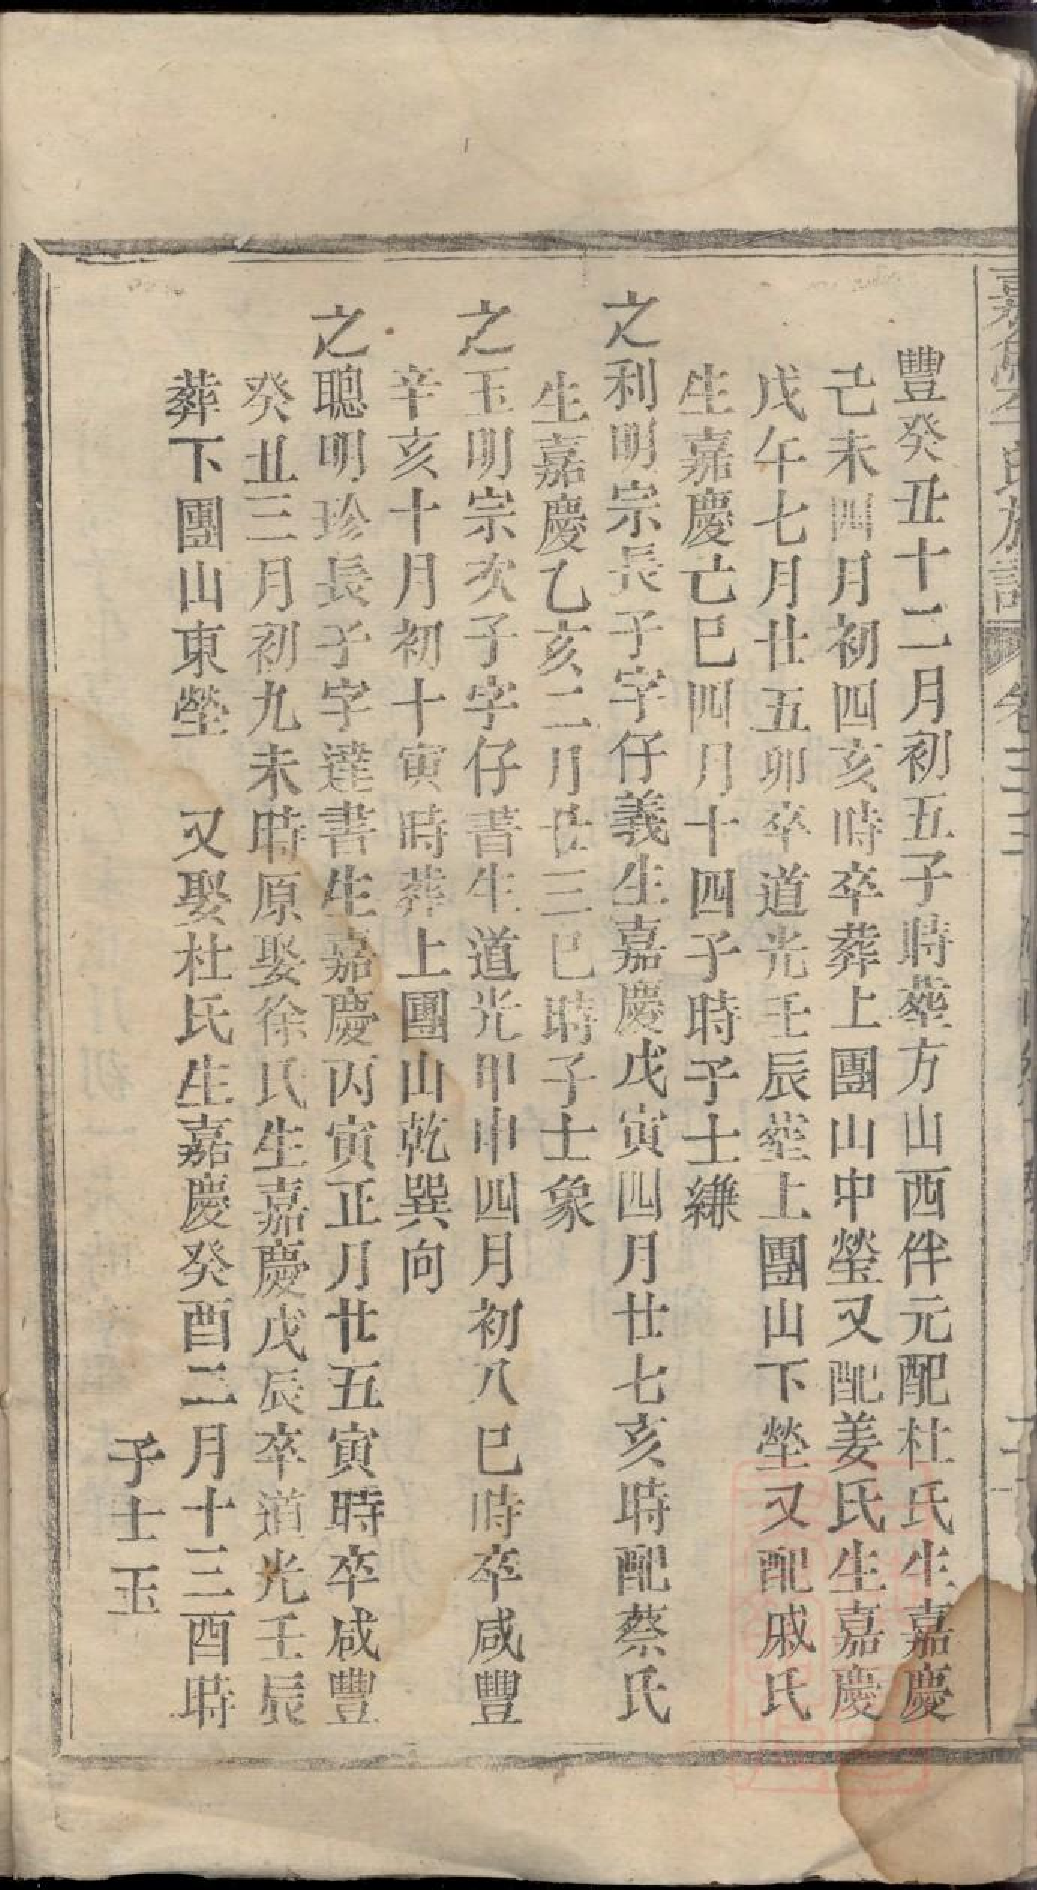 豐癸丑十二月初五子時塟方山西伴元配杜氏生嘉慶
己未四月初四亥時卒葬上團山中塋又配姜氏生嘉慶
戊午七月廿五卯卒道光壬辰塟上團山下塋又配戚氏
生嘉慶己巳四月十四子時子士縑
之利明宗長子字仔義生嘉慶戊寅四月廿七亥時配蔡氏
生嘉慶乙亥二月廿三巳時子士象
之玉明宗次子字仔書生道光甲申四月初八巳時卒咸豐
辛亥十月初十寅時葬上團山乾巽向
之聰明珍長子字達書生嘉慶丙寅正月廿五寅時卒咸豐
癸丑三月初九未時原娶徐氏生嘉慶戊辰卒道光壬辰
葬下團山東塋 又娶杜氏生嘉慶癸酉二月十三酉時
子士玉